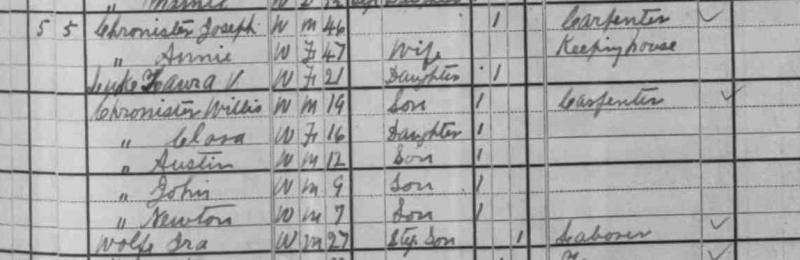 5 5 Chronister Joseph W M 46 1 Carpenter ✓
" Annie W F 47 Wife Keeping house
Luke Laura V W F 21 Daughter 1
Chronister Willis W M 19 Son 1 Carpenter ✓
" Clara W F 16 Daughter 1
" Austin W M 12 Son 1
" John W M 9 Son 1
" Newton W M 7 Son 1
Wolfe Ira W M 27 Step Son 1 Laborer ✓